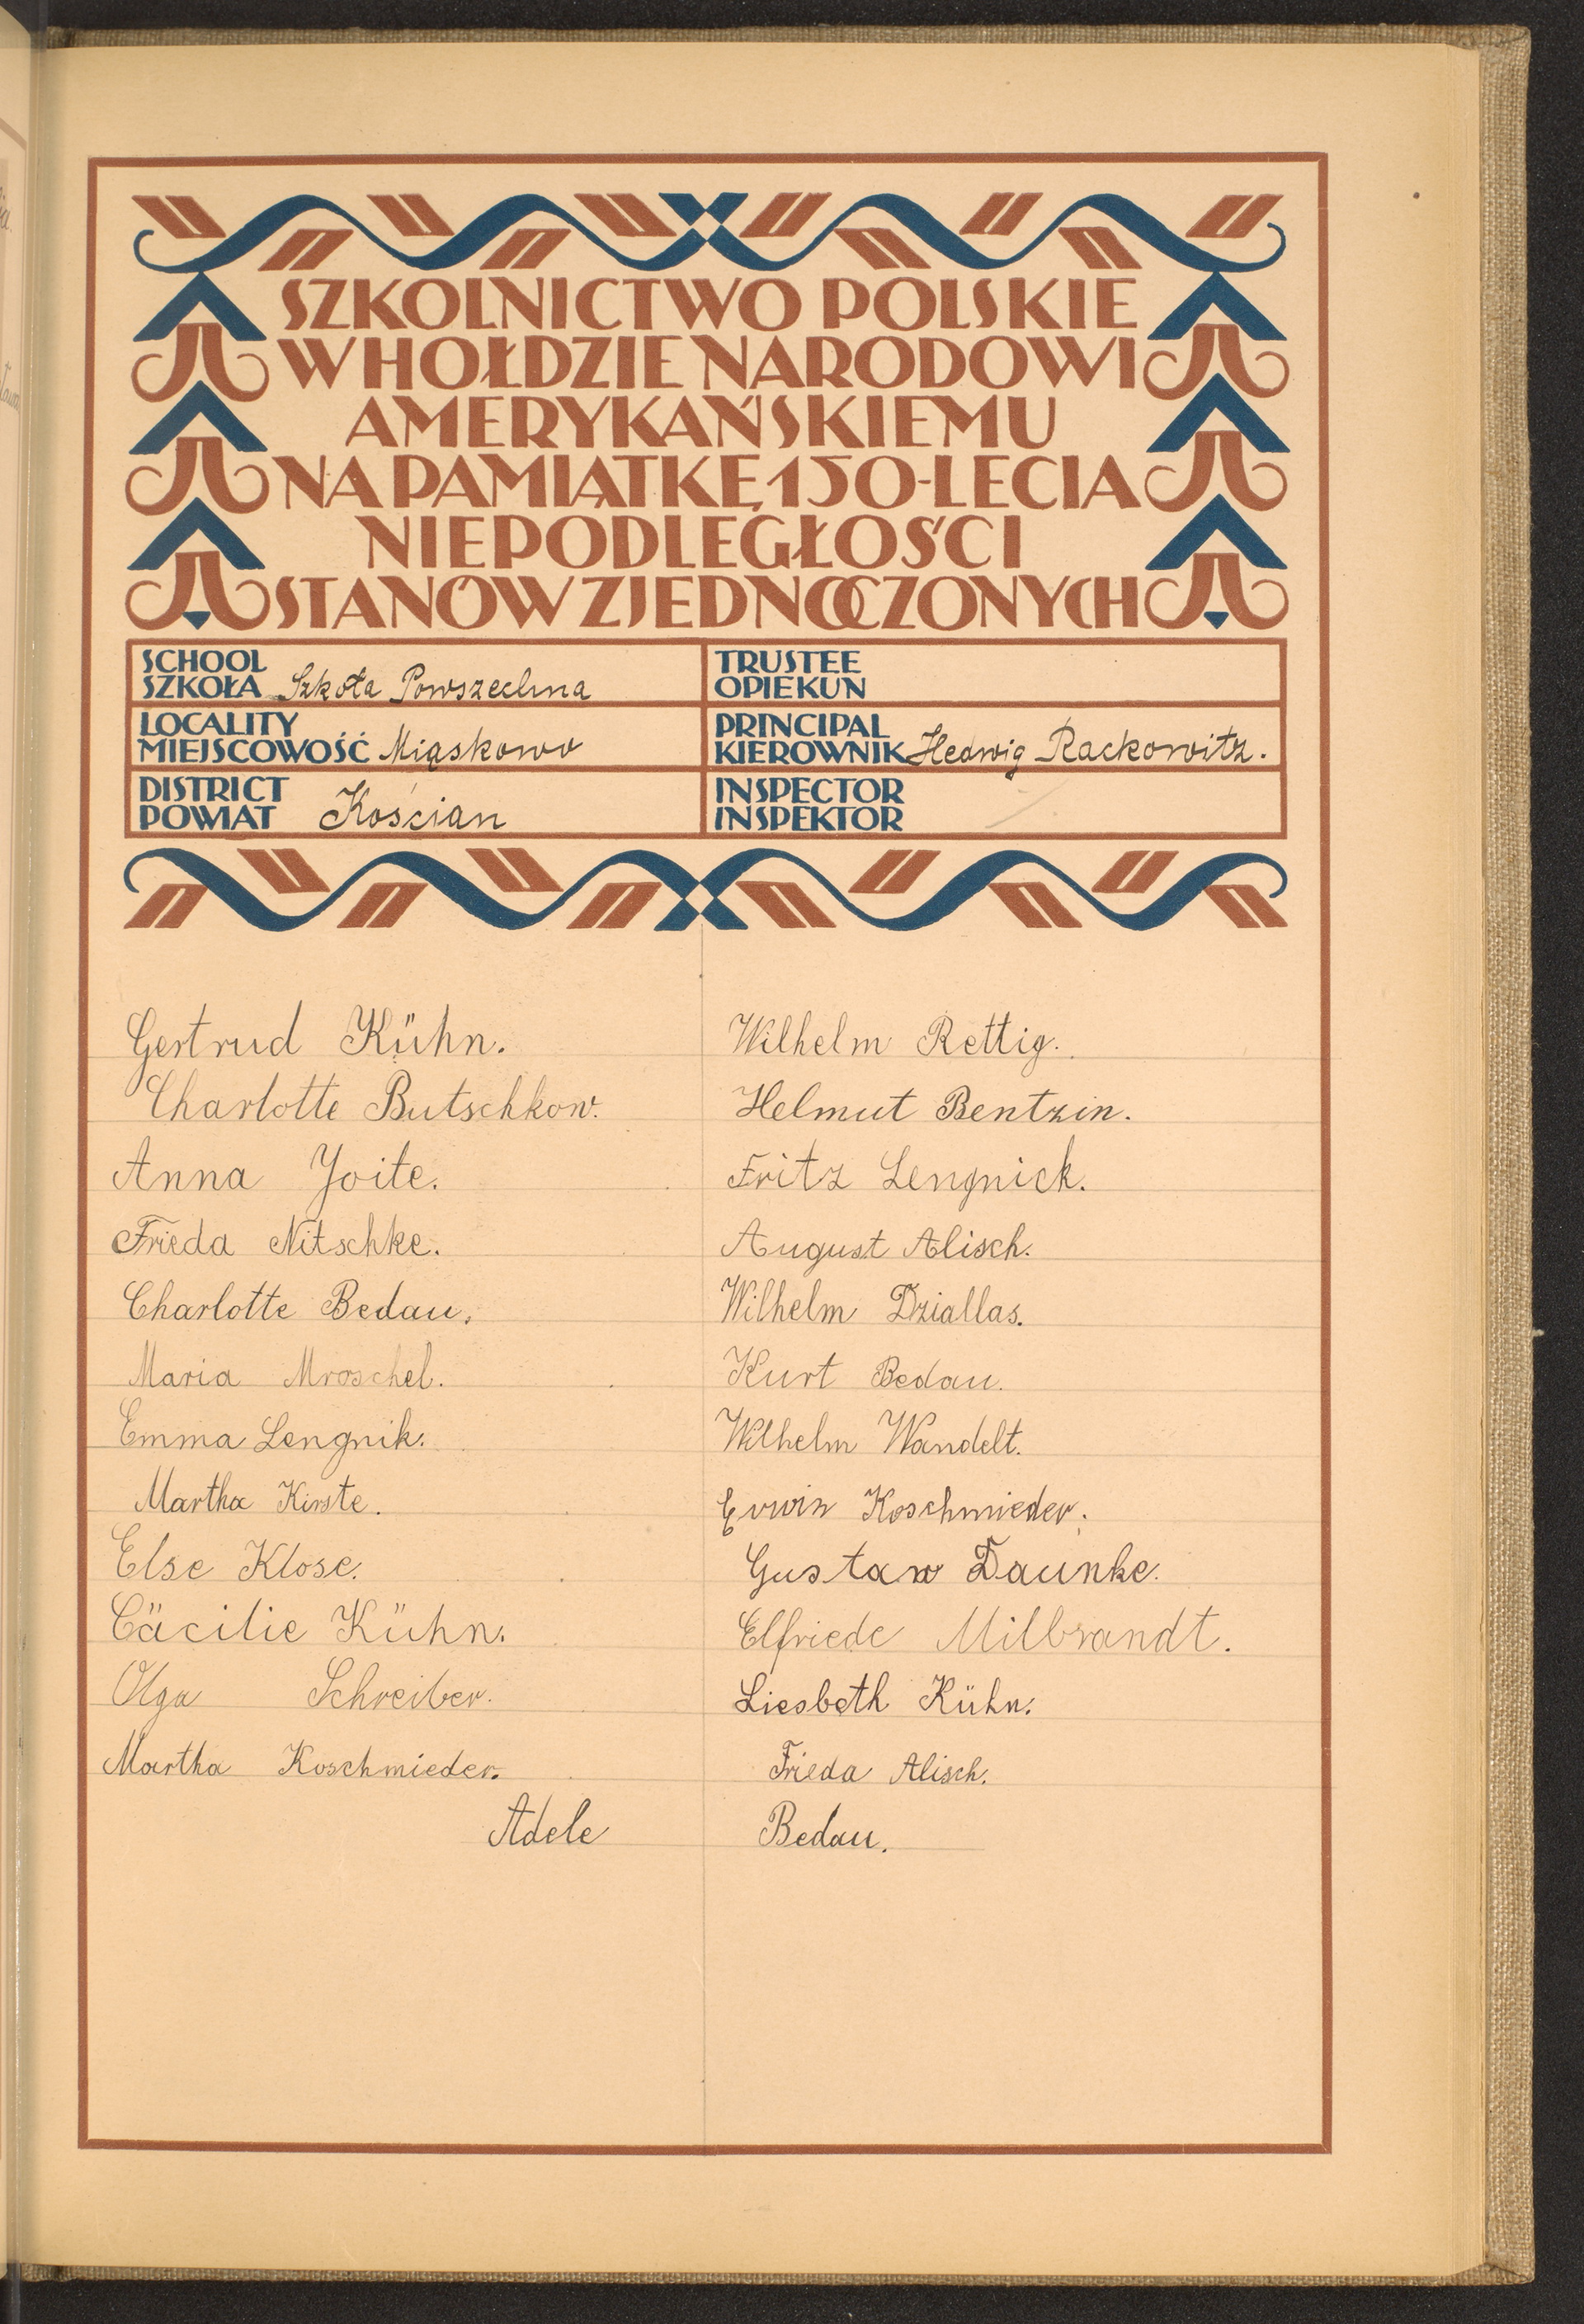 SZKOLNICTWO POLSKIE
W HOŁDZIE NARODOWI
AMERYKAŃSKIEMU
NA PAMIĄTKĘ 150-LECIA
NIEPODLEGŁOŚCI
STANÓW ZJEDNOCZONYCH
SCHOOL
SZKOŁA Szkoła Powszechna
TRUSTEE
OPIEKUN
LOCALITY
MIEJSCOWOŚĆ Miąskowo
PRINCIPAL
KIEROWNIK Hedwig Rackowitz.
DISTRICT
POWIAT Kościan
INSPECTOR
INSPEKTOR
Gertrud Kühn.
Charlotte Butschkow.
Anna Joite.
Frieda Nitschke.
Charlotte Bedau.
Maria Mroschel.
Emma Lengnik.
Martha Kirste.
Else Klose.
Cäcilie Kühn.
Olga Schreiber.
Martha Koschmieder.
Wilhelm Rettig.
Helmut Bentzin.
Fritz Lengnick.
August Alisch.
Wilhelm Dziallas.
Kurt Bedau.
Wilhelm Wandelt.
Erwin Koschmieder.
Gustaw Daunke.
Elfriede Milbrandt.
Liesbeth Kühn.
Frieda Alisch.
Adele Bedau.